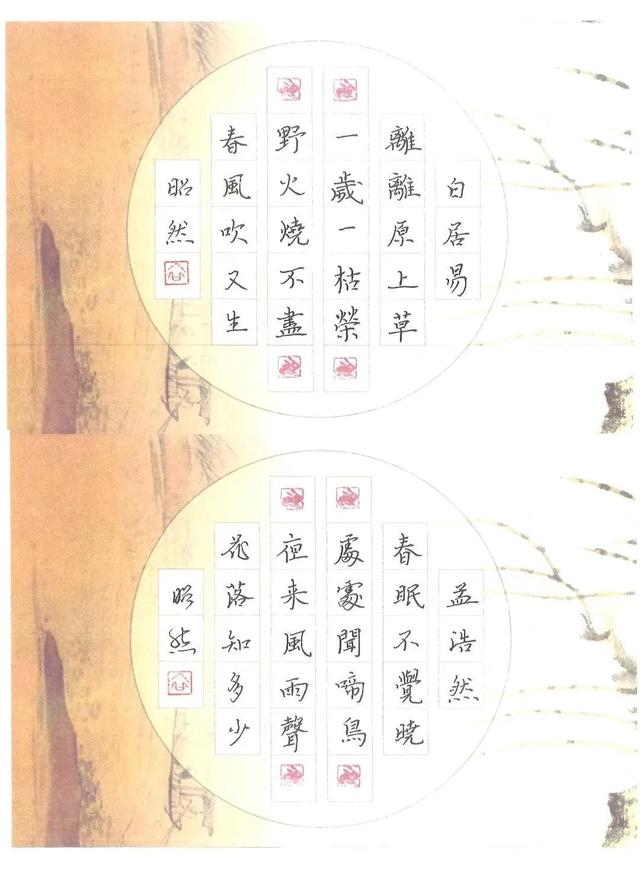 白居易
離離原上草
一歲一枯榮
野火燒不盡
春風吹又生
昭然
孟浩然
春眠不覺曉
處處聞啼鳥
夜来風雨聲
花落知多少
昭然